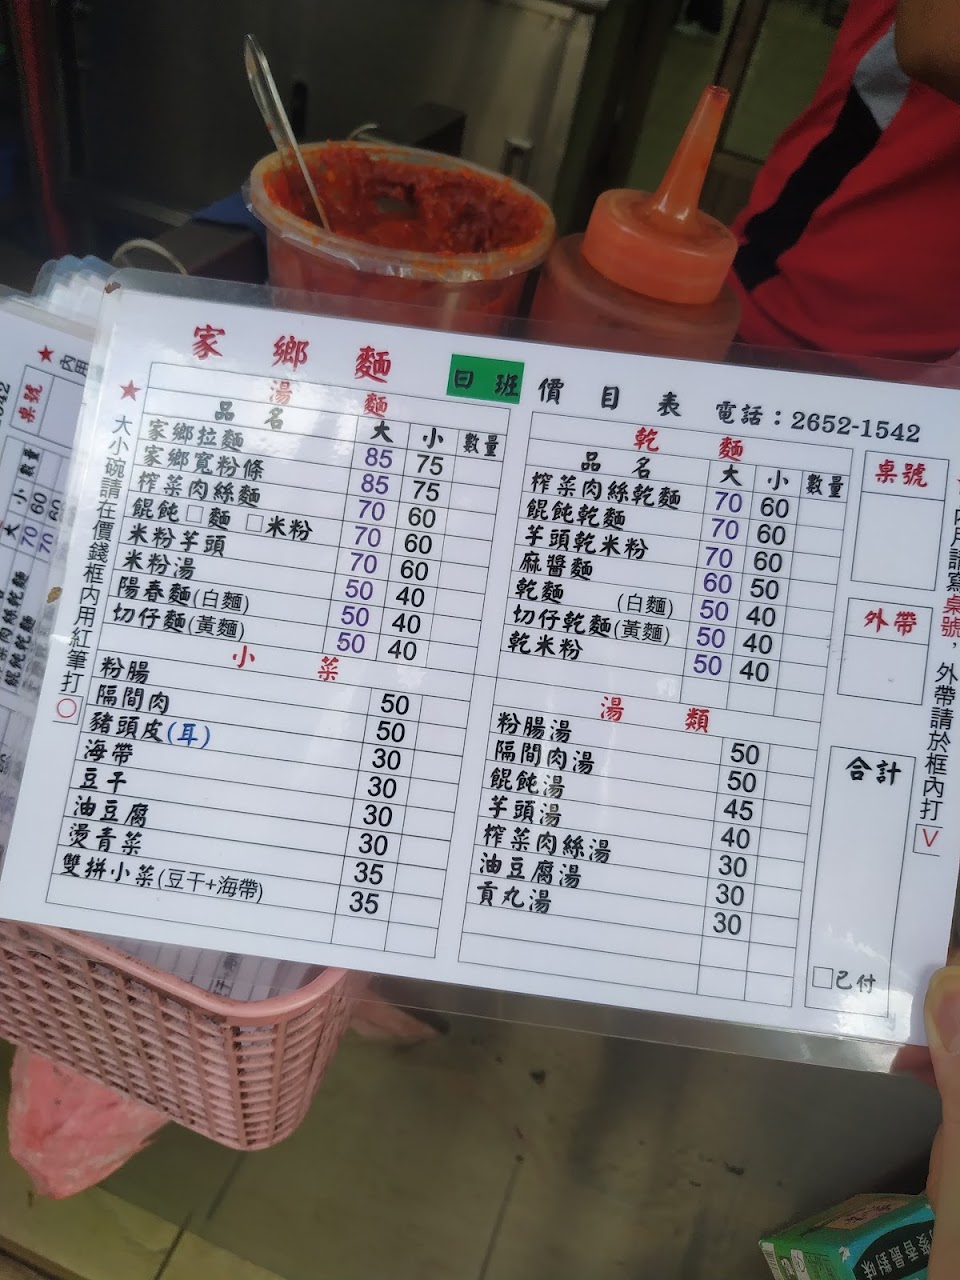 家鄉麵 日班 價目表 電話：2652-1542
★大小碗請在價錢框內用紅筆打○
湯麵
品名 大 小 數量
家鄉拉麵 85 75
家鄉寬粉條 85 75
榨菜肉絲麵 70 60
餛飩□麵 □米粉 70 60
米粉芋頭 70 60
米粉湯 50 40
陽春麵(白麵) 50 40
切仔麵(黃麵) 50 40
小菜
粉腸 50
隔間肉 50
豬頭皮(耳) 30
海帶 30
豆干 30
油豆腐 30
燙青菜 35
雙拼小菜(豆干+海帶) 35
乾麵
品名 大 小 數量
榨菜肉絲乾麵 70 60
餛飩乾麵 70 60
芋頭乾米粉 70 60
麻醬麵 60 50
乾麵 (白麵) 50 40
切仔乾麵(黃麵) 50 40
乾米粉 50 40
湯類
粉腸湯 50
隔間肉湯 50
餛飩湯 45
芋頭湯 40
榨菜肉絲湯 30
油豆腐湯 30
貢丸湯 30
桌號
外帶
合計
□已付
內用請寫桌號，外帶請於框內打V
★內用
桌號
大 小 數量
70 60
70 60